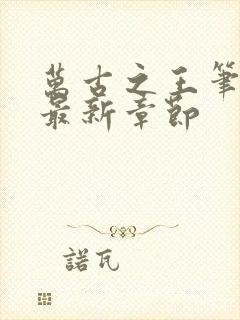 萬古之王筆
最新章節
諾瓦